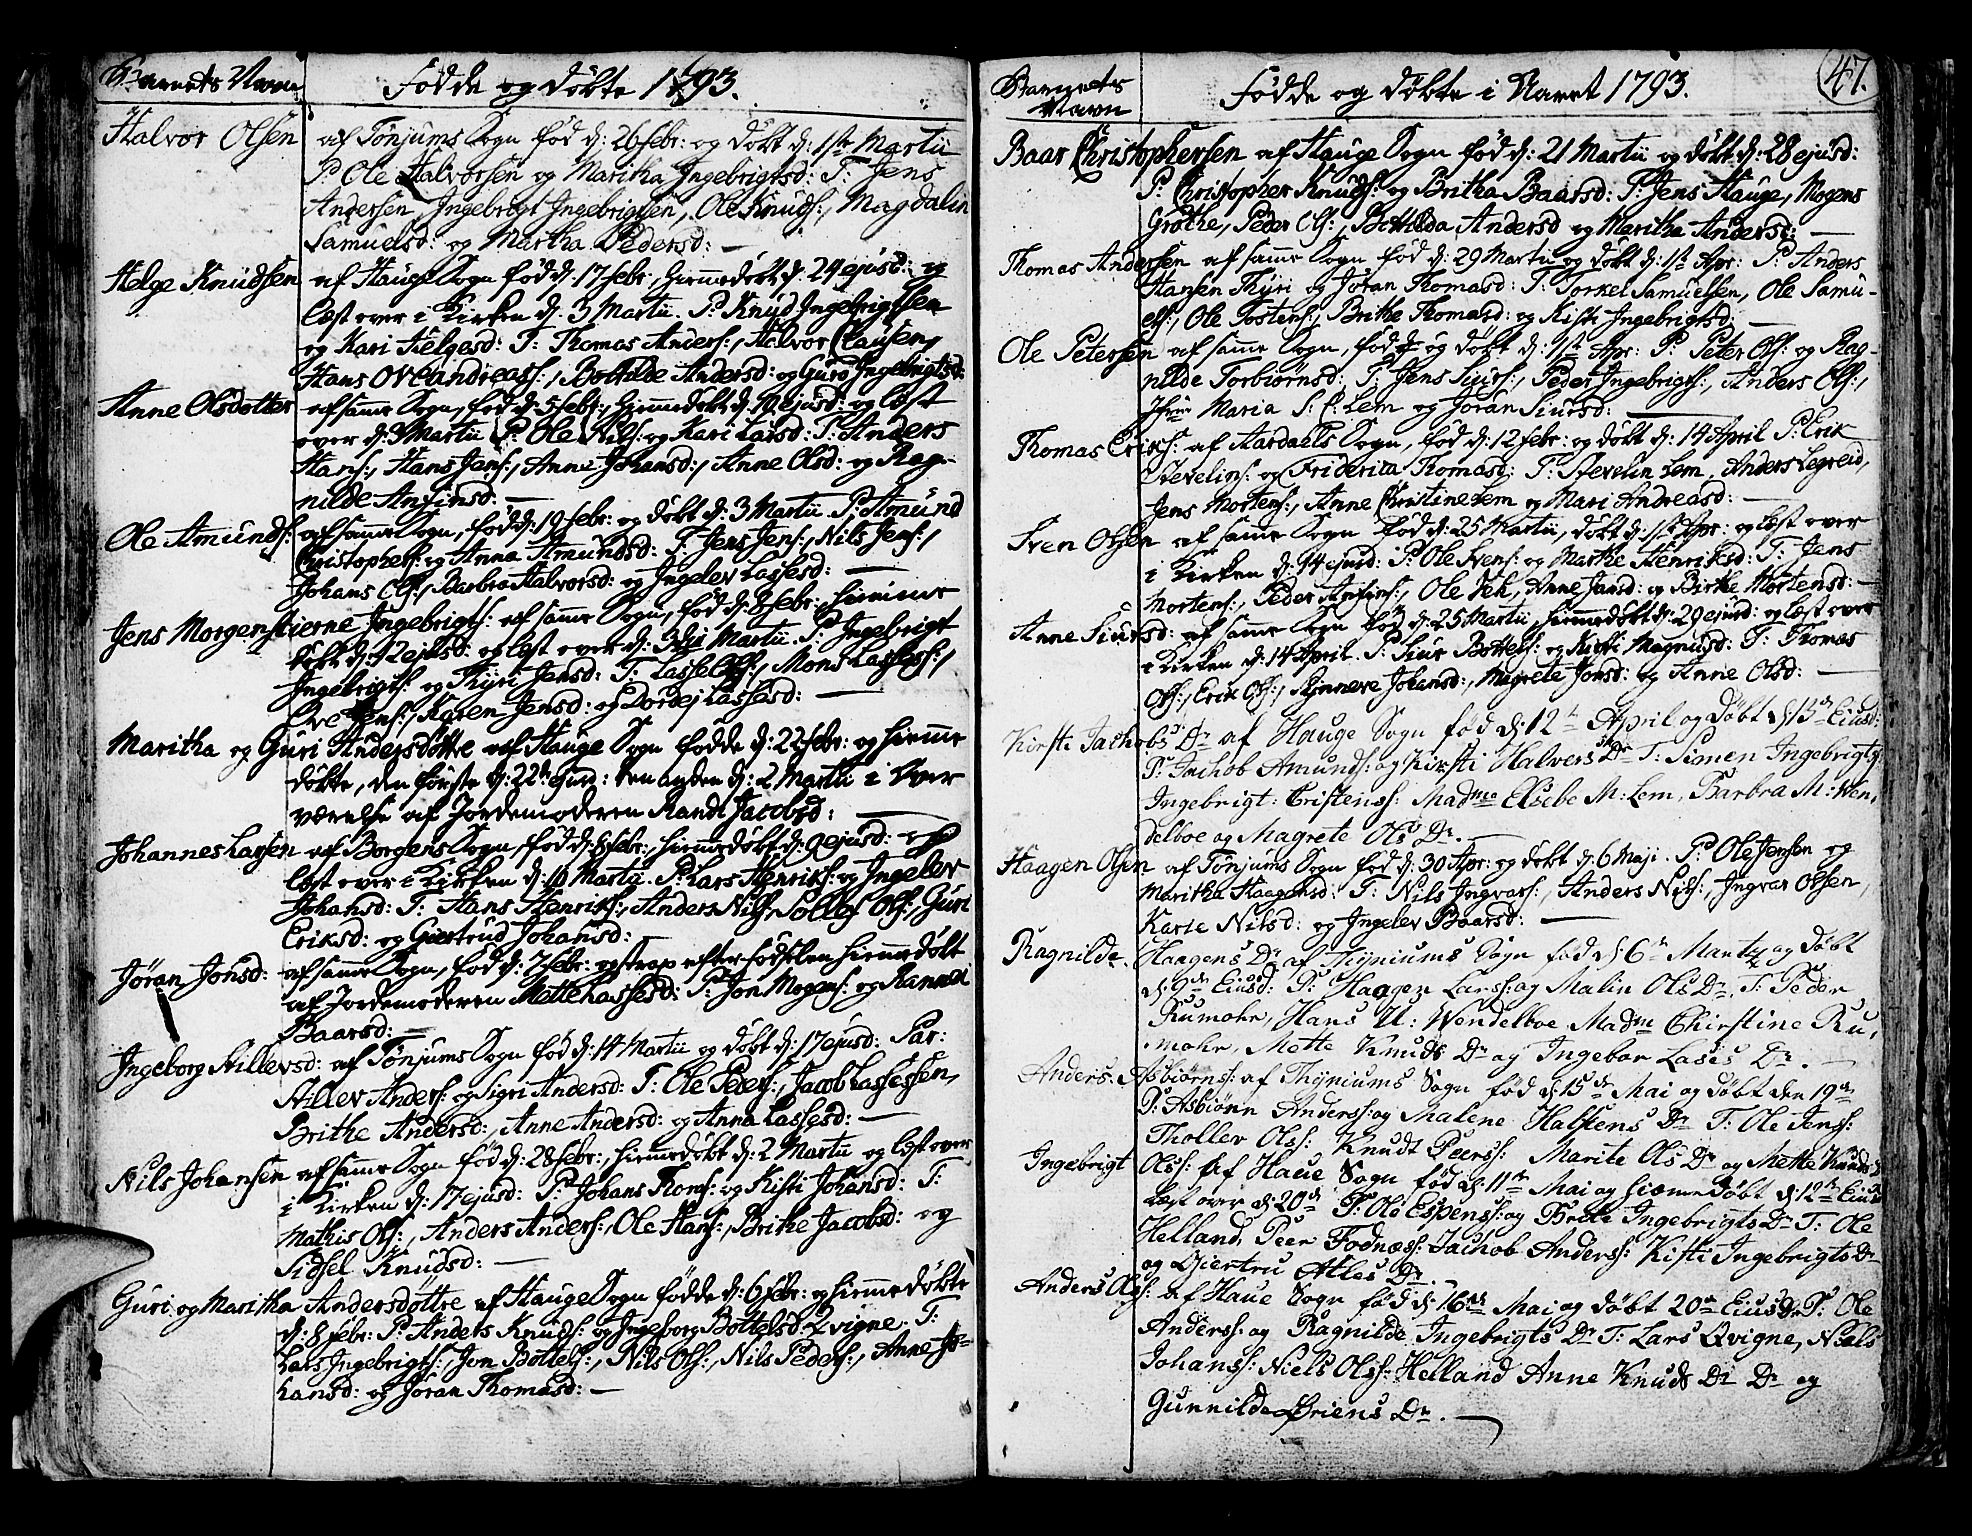 Barnets Navn
Fødde og døbte 1793.
Halvor Olsen af Tønjums Sogn fød d: 26 febr: og døbt d: 1ste Martii
P. Ole Halvorsen og Maritha Ingebrigtsd: T: Jens
Andersen, Ingebrigt Ingebrigtsen, Ole Knuds:, Magdalin
Samuelsd: og Martha Pedersd: —
Helge Knudsen af Hauge Sogn fød d: 17 febr: hiemmedøbt d: 24 ejusd: og
læst over i Kirken d: 3 Martii. P: Knud Ingebrigtsen
og Kari Helgesd: T: Thomas Anders:, Halvor Clausen,
Hans Ole Andreass:, Bothilde Andersd: og Guro Ingebrigtsd:
Anne Olsdotter af samme Sogn, fød d: 5 febr:, hiemmedøbt d: 10 ejusd: og læst
over d: 3 Martii P: Ole Nils: og Kari Larsd: T: Anders
Hans:, Hans Jens:, Anne Johansd:, Anne Olsd: og Rag-
nilde Anfinsd: —
Ole Amunds: af samme Sogn, fød d: 19 febr: og døbt d: 3 Martii P: Amund
Christophers: og Anna Amundsd: T: Jens Jens:, Nils Jens:,
Johans Ols:, Barbra Halvorsd: og Ingelev Lassesd: —
Jens Morgenstierne Ingebrigts: af samme Sogn, fød d: 8 febr: hiemme
døbt d: 12 ejusd: og læst over d: 3die Martii. P: Ingebrigt
Ingebrigts: og Thyri Jensd: T: Lasse Ols:, Mons Lassess:,
Ole Jens:, Karen Jensd: og Dordej Lassesd: —
Maritha og Guri Andersdøttre af Hauge Sogn fødde d: 22 febr: og hiemme
døbte, den første d: 22de ejusd: den anden d: 2 Martii i Over
værelse af Jordemoderen Randi Jacobsd: —
Johannes Larsen af Borgens Sogn, fød d: 8 febr: hiemmedøbt d: 9 ejusd: og
læst over i Kirken d: 10 Martii. P: Lars Henriks: og Ingelev
Johansd: T: Hans Henriks:, Anders Nils:, Tollof Ols:, Guri
Eriksd: og Giertrud Johansd: —
Jøran Jonsd: af samme Sogn, fød d: 7 febr: og strax efter fødselen hiemmedøbt
af Jordemoderen Mette Lassesd: P: Jon Mogens: og Rannei
Baarsd: —
Ingeborg Hillevsd: af Tønjums Sogn fød d: 14 Martii og døbt d: 17 ejusd: Par:
Hillev Anders: og Sigri Andersd: T: Ole Peders:, Jacob Lassesen,
Brithe Andersd:, Anne Andersd: og Anna Lassesd: —
Nils Johansen af samme Sogn fød d: 28 febr:, hiemmedøbt d: 2 Martii og læst over
i Kirken d: 17 ejusd: P: Johans Thoms: og Kisti Johansd: T:
Mathis Ols:, Anders Anders:, Ole Hans:, Brithe Jacobsd: og
Sidsel Knudsd: —
Guri og Maritha Andersdøttre af Hauge Sogn fødde d: 6 febr: og hiemmedøbte
d: 8 febr: P: Anders Knuds: og Ingeborg Bottelsd: Qvigne. T:
Lars Ingebrigts:, Jon Bottels:, Nils Ols:, Nils Peders:, Anne Jo=
hansd: og Jøran Thomasd: —
47.
Barnets
Navn
Fødde og døbte i Aaret 1793.
Baar Christophersen af Hauge Sogn fød d: 21 Martii og døbt d: 28 ejusd:
P: Christopher Knuds: og Britha Baarsd: T: Jens Hauge, Mogens
Grothe, Peder Ols:, Bothilda Andersd og Maritha Andersd: —
Thomas Andersen af samme Sogn fød d: 29 Martii og døbt d: 1st Apr: P: Anders
Hansen Thyri og Jøran Thomasd: T: Torkel Samuelsen, Ole Samu-
els:, Ole Tostens:, Brithe Thomasd: og Kisti Ingebrigtsd: —
Ole Petersen af samme Sogn, fød og døbt d: 1st Apr: P: Peter Ols: og Rag-
nilde Torbiørnsd: T: Jens Siurs:, Peder Ingebrigts:, Anders Ols:,
Jfrue Maria S: C: Lem og Jøran Siursd: —
Thomas Eriks: af Aardaels Sogn, fød d: 12 febr: og døbt d: 14 April P: Erik
Stevelins: og Friderica Thomasd: T: Stevelin Lem, Anders Legreid,
Jens Mortens:, Anne Christine Lem og Mari Andreasd: —
Sven Olsen af samme Sogn fød d: 25 Martii, døbt d: 1st Apr: og læst over
i Kirken d: 14 ejusd: P: Ole Svens: og Marthe Henriksd: T: Jens
Mortens:, Peder Anfins:, Ole Vek, Anne Jansd: og Birthe Mortensd: —
Anne Siursd: af samme Sogn fød d: 25 Martii, hiemmedøbt d: 29 ejusd: og læst over
i Kirken d: 14 April. P: Siur Bottels: og Kisti Magnusd: T: Thomas
Ols:, Erik Ols:, Synneve Johansd:, Magrete Jonsd: og Anne Olsd: —
Kirsti Jachobs Dr af Hauge Sogn fød d: 12te April og døbt d: 15de Eiusd:
P: Jachob Amunds: og Kirsti Halvers Dr T: Simen Ingebrigts:
Ingebrigt: Cristenss: Madme Elsebe M: Lem, Barbra M: Wen,
delboe og Magrete Ols Dr. —
Haagen Olsen af Tønjums Sogn fød d: 30 Apr: og døbt d: 6 Maji. P: Ole Jensen og
Maritha Haagensd: T: Nils Ingvars:, Anders Nils:, Ingvar Olsen,
Karie Nilsd: og Ingelev Baarsd: —
Ragnilde Haagens Dr af Thyniums Sogn fød d: 6te Marty og døbt
d: 9de Eiusd: P: Haagen Larss: og Malin Ols Dr. T: Peder
Rumohr, Hans U: Wendelboe Madme Chirstine Ru,
mohr, Mette Knuds Dr og Ingebor Lases Dr. —
Anders Asbiørns: af Thyniums Sogn fød d: 15de Mai og døbt den 19de
P: Asbiønn Anderss: og Malene Halstens Dr T: Ole Jenss:
Thollev Olss: Knudt Peerss: Marite Ols Dr og Mette Knuds D
Ingebrigt Olss: af Haue Sogn fød d: 11te Mai og hiemedøbt d: 12te Eiusd
læst over d: 20de P: Ole Espenss: og Brite Ingebrigts Dr T: Ole
Helland, Peer Fodnæss: Jachob Anderss: Kisti Ingebrigts Dr
og Giertru Atles Dr.
Anders Olss: af Haue Sogn fød d: 16de Mai og døbt 20de Eiusdr P: Ole
Anderss: og Ragnilde Ingebrigts Dr T: Lars Qvigne, Niels
Johanss: Niels Olss: Helland Anne Knuds Dr Dr og
Gunnilde Briens Dr. —